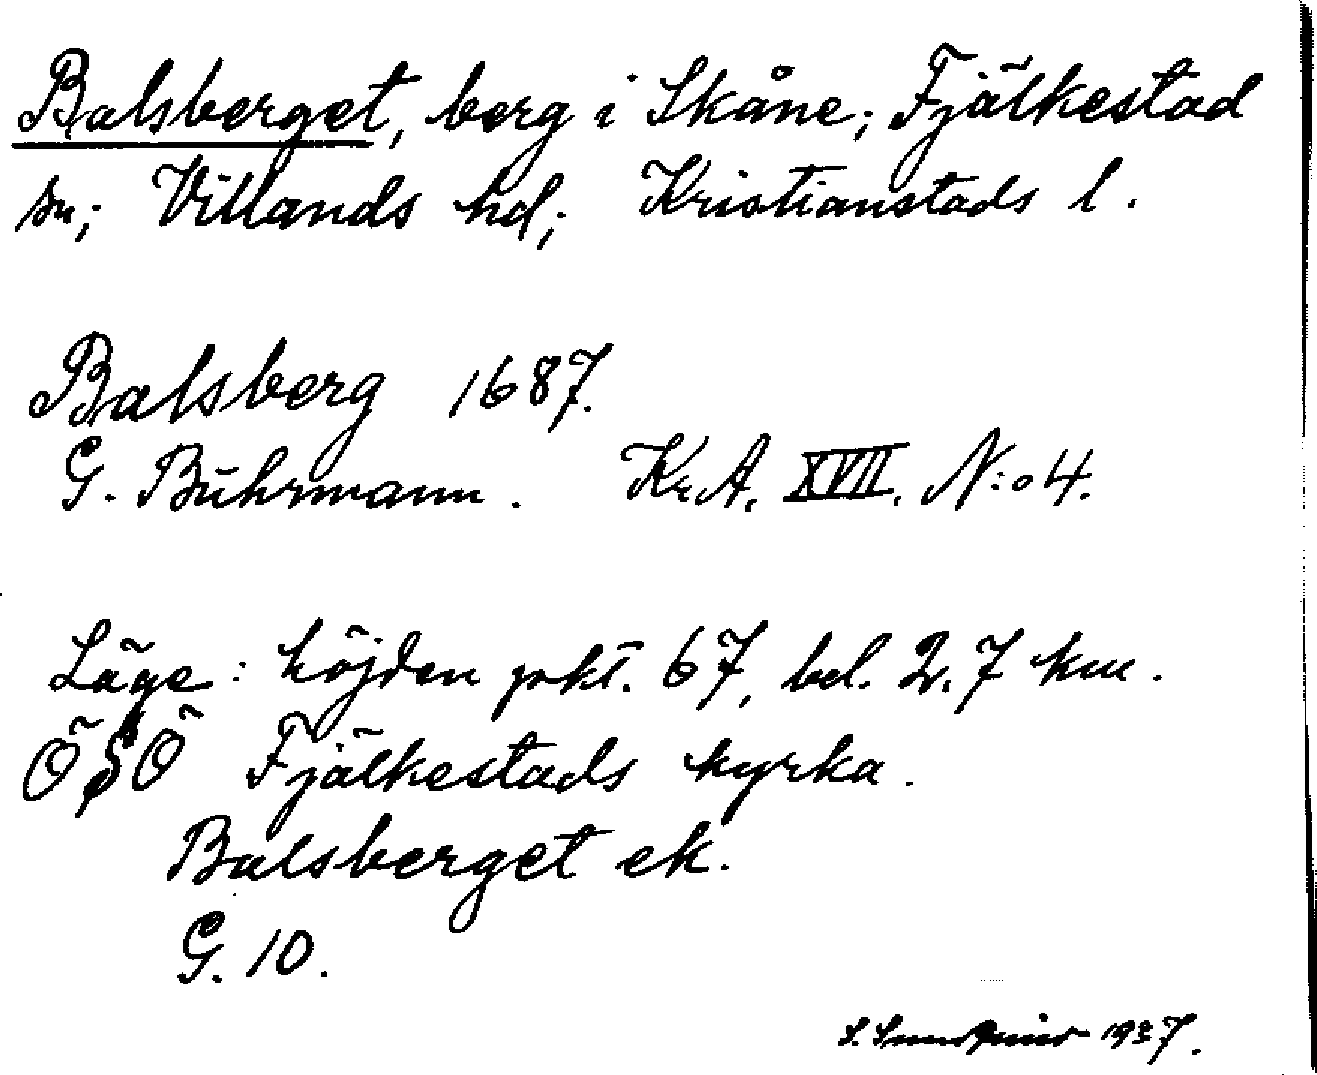 Balsberget, berg i Skåne; Fjälkestad
sn; Villands hd; Kristianstads l.
Balsberg 1687.
G. Buhrmann. Kr.A. XVII. N:o 4.
Läge: höjden pkt. 67, bel. 2.7 km.
ÖSÖ Fjälkestads kyrka.
Balsberget ek.
G. 10.
S. 1937.